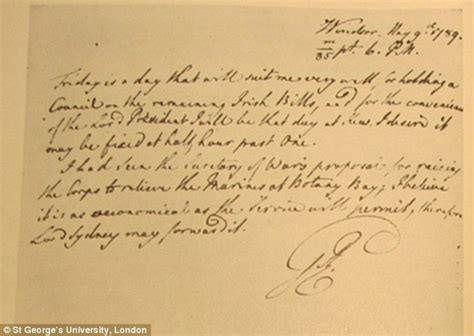 Windsor, May 9th 1789.
m/35 pt. 6. P.M.
Friday is a day that will suit me very well for holding a
Council on the remaining Irish Bills, and for the convenience
of the Lord President I will be that day at Kew, I desire it
may be fixed at half hour past One.
I had seen the Secretary of War's proposal for raising
the Corps to relieve the Marines at Botany Bay; I believe
it is as oeconomical as the Service will permit, therefore
Lord Sydney may forward it.
GR
© St George's University, London